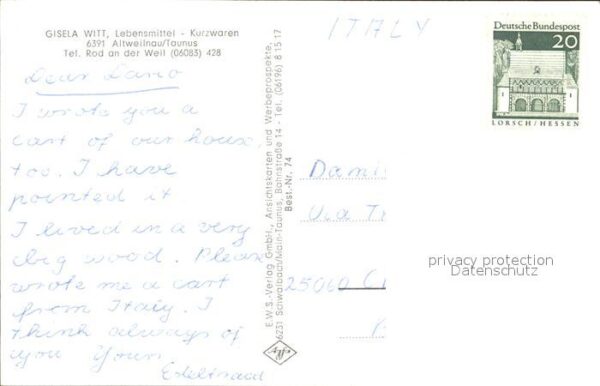 GISELA WITT, Lebensmittel - Kurzwaren
6391 Altweilnau/Taunus
Tel. Rod an der Weil (06083) 428
Dear Dario
I wrote you a
cart of our house,
too. I have
pointed it
I lived in a very
big wood. Please
wrote me a cart
from Italy. I
think always of
you Your
Edeltraud
E.W.S.-Verlag GmbH., Ansichtskarten und Werbeprospekte,
6231 Schwalbach/Main-Taunus, Bahnstraße 14 - Tel. (06196) 8 15 17
Best.-Nr. 74
ITALY
Deutsche Bundespost
20
LORSCH / HESSEN
Via
25060
privacy protection
Datenschutz